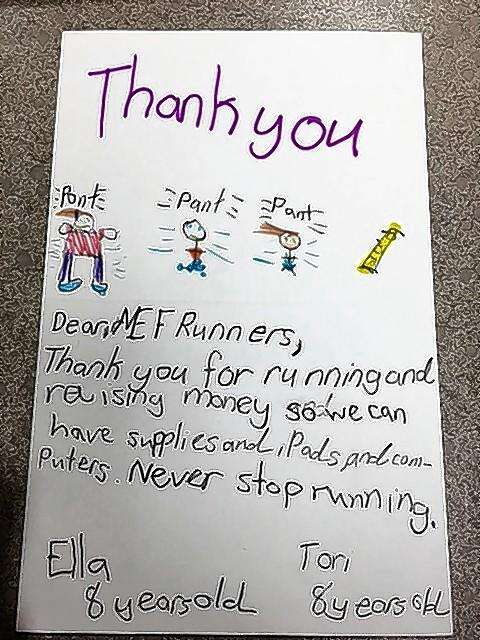 Thank you
Pant Pant Pant
Dear, NEF Runners,
Thank you for running and
raising money so we can
have supplies and iPads and com-
puters. Never stop running.
Ella Tori
8 years old 8 years old